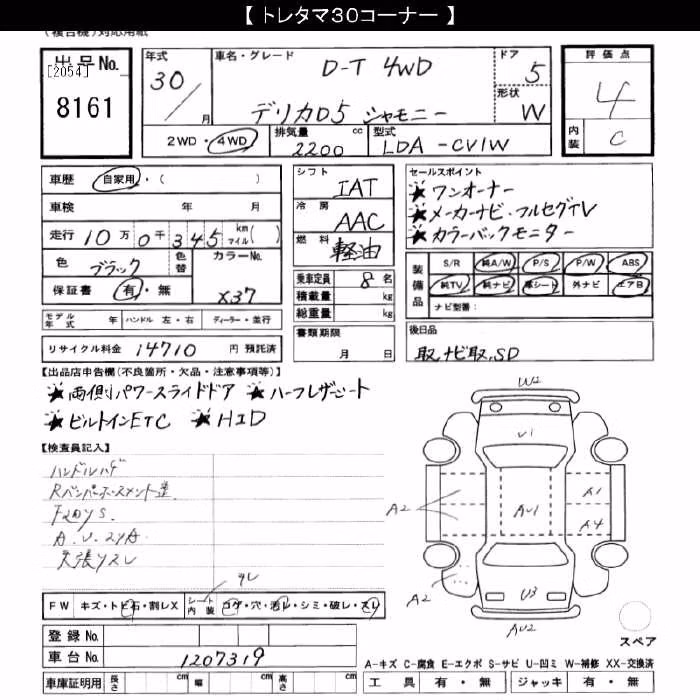 【 トレタマ30コーナー 】
(複合機)対応用紙
出品No. [2054] 8161
年式 30 / 月
車名・グレード D-T 4WD
デリカD5 シャモニー
ドア 5
形状 W
評価点 4
内装 C
2WD・4WD 排気量 2200 cc 型式 LDA-CV1W
車歴 自家用・( )
車検 年 月
走行 10万0千345 km マイル( )
色 ブラック 色替 カラーNo. X37
保証書 有・無
モデル年式 年 ハンドル 左・右 ディーラー・並行
リサイクル料金 14710 円 預託済
シフト IAT
冷房 AAC
燃料 軽油
乗車定員 8 名
積載量 kg
総重量 kg
書類期限 月 日
セールスポイント
★ワンオーナー
★メーカーナビ・フルセグTV
★カラーバックモニター
装備品 S/R 純A/W P/S P/W ABS
純TV 純ナビ 革シート 外ナビ エアB
ナビ型番:
後日品
取、ナビ取、SD
【出品店申告欄(不良箇所・欠品・注意事項等)】
★両側パワースライドドア ★ハーフレザーシート
★ビルトインETC ★HID
【検査員記入】
ハンドルハゲ
A.U.
天張りスレ
FW キズ・トビ石・割レX シート内装 コゲ・穴・汚レ・シミ・破レ・スレ
登録No.
車台No. 1207319
車庫証明用 長さ cm 幅 cm 高さ cm
W2
U1
A2
AU1
A1
A4
A2
U3
AU2
スペア
A-キズ C-腐食 E-エクボ S-サビ U-凹ミ W-補修 XX-交換済
工具 有・無 ジャッキ 有・無